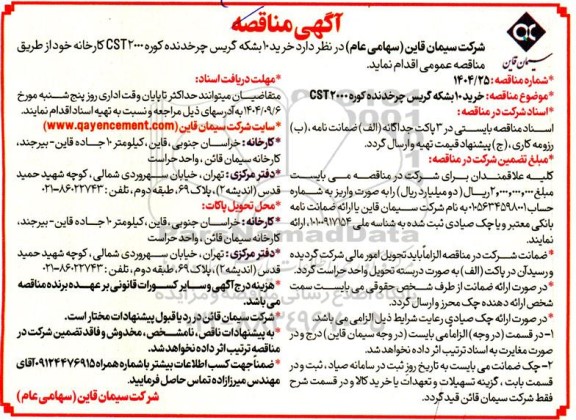 آگهی مناقصه
سیمان قاین
شرکت سیمان قاین (سهامی عام) در نظر دارد خرید ۱۰ بشکه گریس چرخدنده کوره CST۲۰۰۰ کارخانه خود از طریق
مناقصه عمومی اقدام نماید.
*شماره مناقصه: ۱۴۰۴/۲۵
*موضوع مناقصه: خرید ۱۰ بشکه گریس چرخدنده کوره CST۲۰۰۰
*اسناد شرکت در مناقصه:
اسناد مناقصه بایستی در ۳ پاکت جداگانه (الف) ضمانت نامه، (ب)
رزومه کاری، (ج) پیشنهاد قیمت تهیه و ارسال گردد.
*مبلغ تضمین شرکت در مناقصه:
کلیه علاقمندان برای شرکت در مناقصه می بایست
مبلغ ۲,۰۰۰,۰۰۰,۰۰۰ ریال (دو میلیارد ریال) را به صورت واریز به شماره
حساب ۰۱۰۵۶۳۴۵۹۸۰۰۱ به نام شرکت سیمان قاین یا ارائه ضمانت نامه
بانکی معتبر و یا چک صیادی ثبت شده به شناسه ملی ۱۰۱۰۰۹۱۷۱۵۴ ارائه
نمایند.
*ضمانت شرکت در مناقصه الزاماً باید تحویل امور مالی شرکت گردیده
و رسید آن در پاکت (الف) به صورت دربسته تحویل واحد حراست گردد.
*در صورت ارائه ضمانت از طرف شخص حقوقی می بایست سمت
شخص ارائه دهنده چک محرز و ارسال گردد.
*در صورت ارائه چک صیادی رعایت شرایط ذیل الزامی می باشد.
۱- در قسمت (در وجه) الزاما می بایست (در وجه سیمان قاین) درج و در
صورت مغایرت به اسناد ترتیب اثر داده نخواهد شد.
۲- چک ضمانت می بایست به تاریخ روز ثبت در سامانه صیاد، ثبت و در
قسمت بابت، گزینه تسهیلات و تعهدات یا خرید کالا و در قسمت شرح
فقط شرکت سیمان قائن قید گردد.
*مهلت دریافت اسناد:
متقاضیان میتوانند حداکثر تا پایان وقت اداری روز پنج شنبه مورخ
۱۴۰۴/۰۹/۶ به آدرسهای ذیل مراجعه و نسبت به تهیه اسناد اقدام نمایند.
*سایت شرکت سیمان قاین (www.qayencement.com)
*کارخانه: خراسان جنوبی، قاین، کیلومتر ۱۰ جاده قاین- بیرجند،
کارخانه سیمان قائن، واحد حراست
*دفتر مرکزی: تهران، خیابان سهروردی شمالی، کوچه شهید حمید
قدس (اندیشه۲)، پلاک ۶۹، طبقه دوم، تلفن: ۸۶۰۲۲۷۴۳-۰۲۱
*محل تحویل پاکات:
*کارخانه: خراسان جنوبی، قاین، کیلومتر ۱۰ جاده قاین- بیرجند،
کارخانه سیمان قائن، واحد حراست
*دفتر مرکزی: تهران، خیابان سهروردی شمالی، کوچه شهید حمید
قدس (اندیشه۲)، پلاک ۶۹، طبقه دوم، تلفن: ۸۶۰۲۲۷۴۳-۰۲۱
*هزینه درج آگهی و سایر کسورات قانونی بر عهده برنده مناقصه
می باشد.
*شرکت سیمان قاین در رد یا قبول پیشنهادات مختار است.
*به پیشنهادات ناقص، نامشخص، مخدوش و فاقد تضمین شرکت در
مناقصه ترتیب اثر داده نخواهد شد.
*ضمنا جهت کسب اطلاعات بیشتر با شماره همراه ۰۹۱۲۴۴۷۶۹۱۵ آقای
مهندس میرزازاده تماس حاصل فرمایید.
شرکت سیمان قاین (سهامی عام)